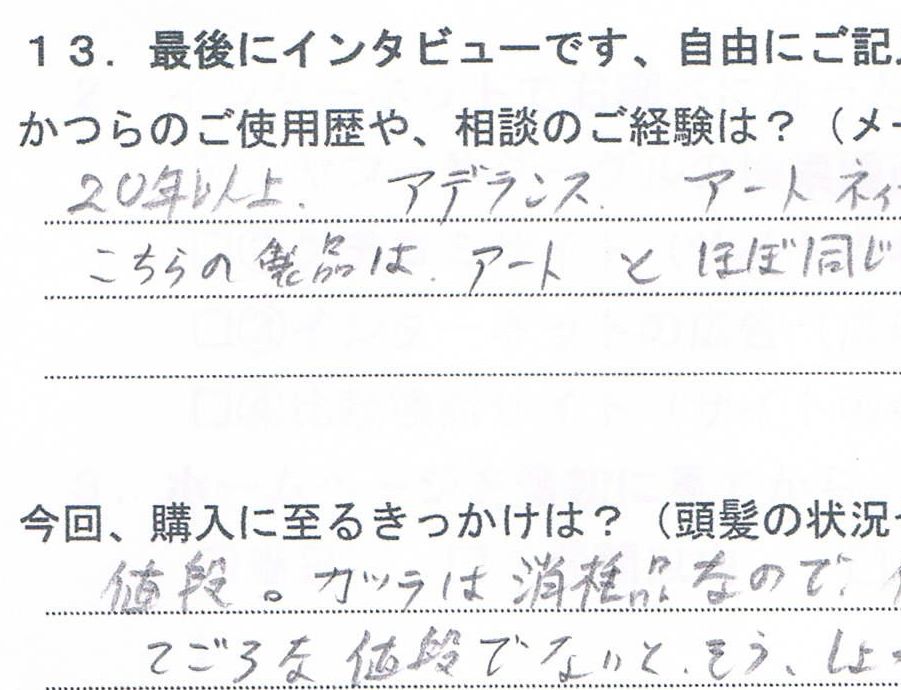 13．最後にインタビューです、自由にご記
かつらのご使用歴や、相談のご経験は？（メー
20年以上. アデランス. アートネイ
こちらの製品は. アート と ほぼ同じ
今回、購入に至るきっかけは？（頭髪の状況
値段。カツラは消耗品なので、
てごろな値段でないと、そう、しょ